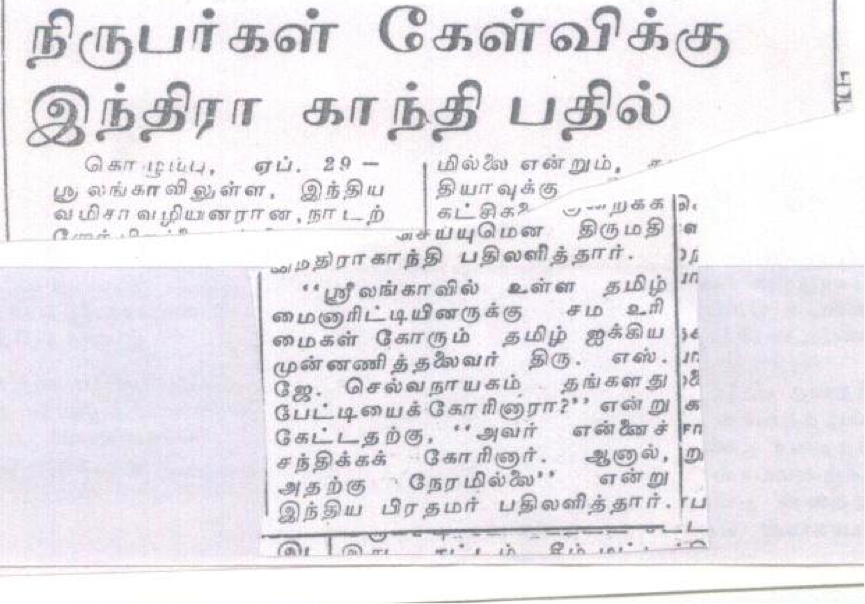 நிருபர்கள் கேள்விக்கு
இந்திரா காந்தி பதில்
கொழும்பு, ஏப். 29 –
ஸ்ரீ லங்காவிலுள்ள, இந்திய
வம்சாவழியினரான, நாடற்
மில்லை என்றும்,
தியாவுக்கு
செய்யுமென திருமதி
இந்திராகாந்தி பதிலளித்தார்.
“ஸ்ரீலங்காவில் உள்ள தமிழ்
மைனாரிட்டியினருக்கு சம உரி
மைகள் கோரும் தமிழ் ஐக்கிய
முன்னணித்தலைவர் திரு. எஸ்.
ஜே. செல்வநாயகம் தங்களது
பேட்டியைக்கோரினாரா?” என்று
கேட்டதற்கு, “அவர் என்னைச்
சந்திக்கக் கோரினார். ஆனால்,
அதற்கு நேரமில்லை” என்று
இந்திய பிரதமர் பதிலளித்தார்.